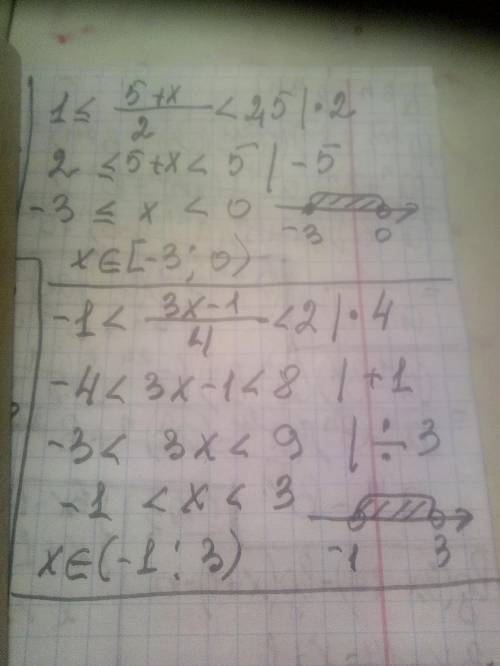 1 ≤ (5+x)/2 < 2,5 | · 2
2 ≤ 5+x < 5 | -5
-3 ≤ x < 0
-3 0
x∈[-3; 0)
-1 < (3x-1)/4 < 2 | · 4
-4 < 3x-1 < 8 | +1
-3 < 3x < 9 | ÷ 3
-1 < x < 3
x∈(-1; 3)
-1 3